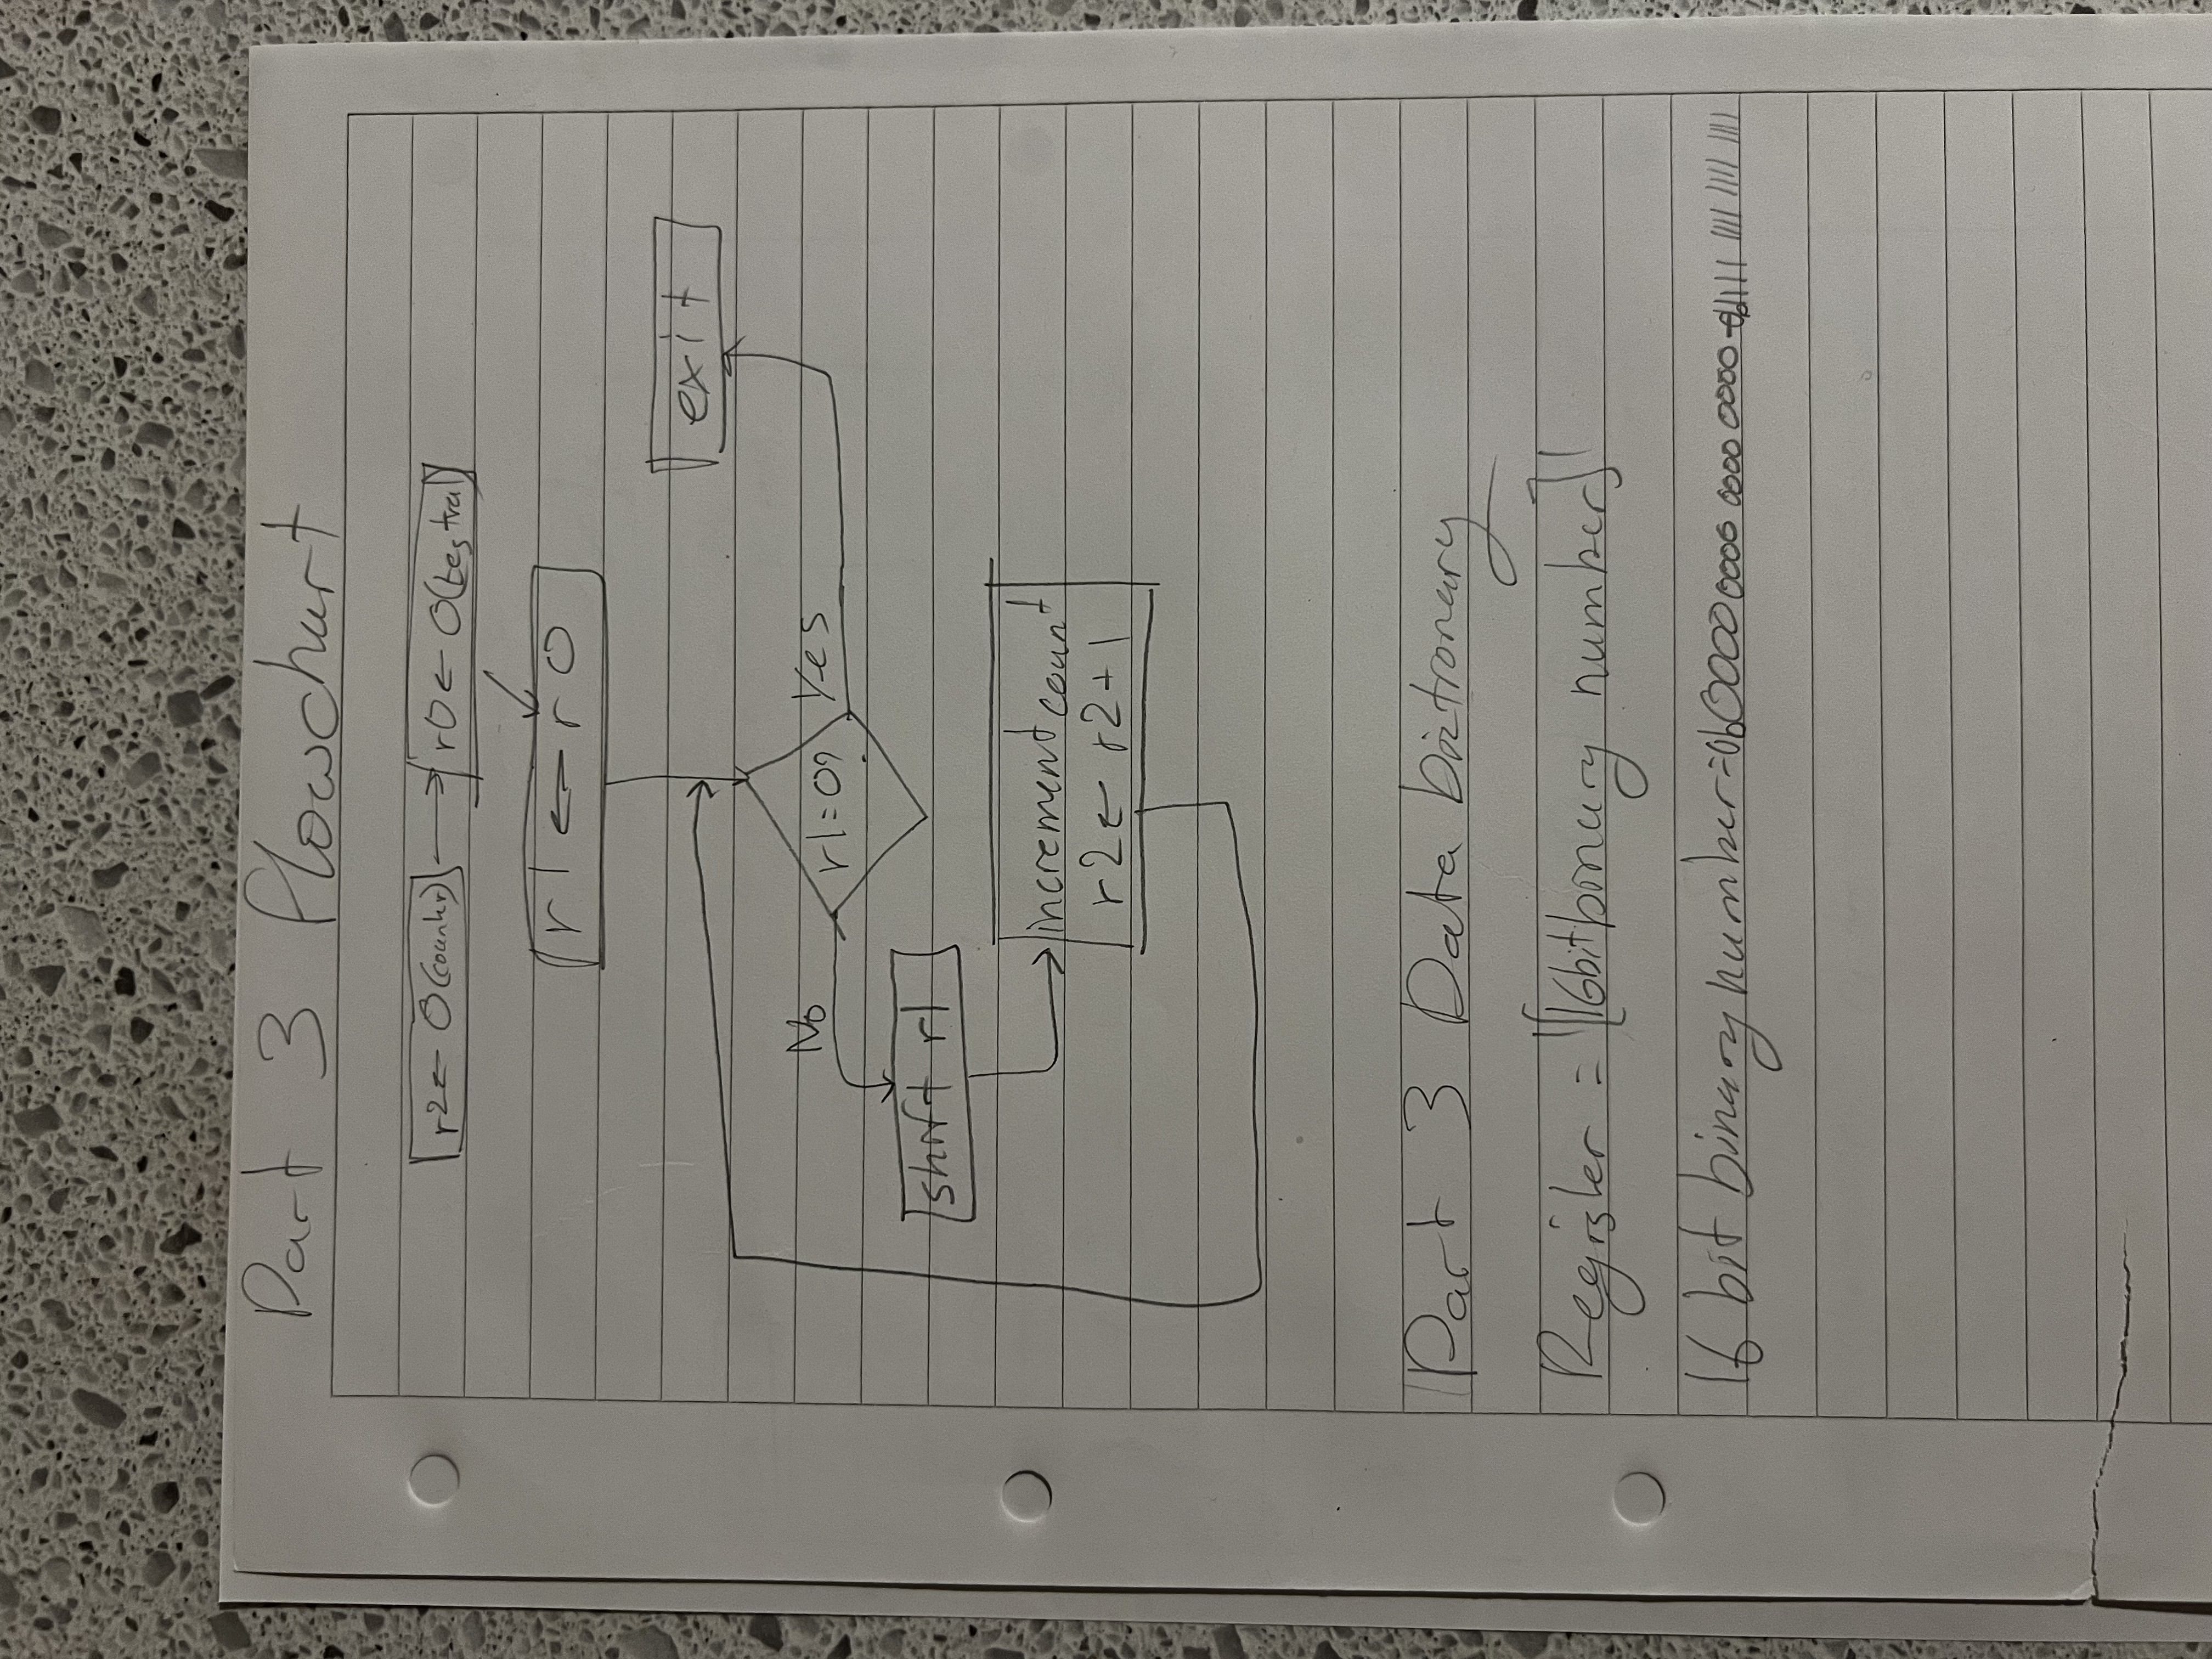 Part 3 Flowchart
r2 ← 0 (counter)
r0 ← 0 (test val)
r1 ← r0
exit
No
r1 = 0?
Yes
shift r1
increment count
r2 ← r2 + 1
Part 3 Data Dictionary
Register = "[16bit binary number]"
16 bit binary number = 0b0000 0000 0000 0000 - 0b1111 1111 1111 1111